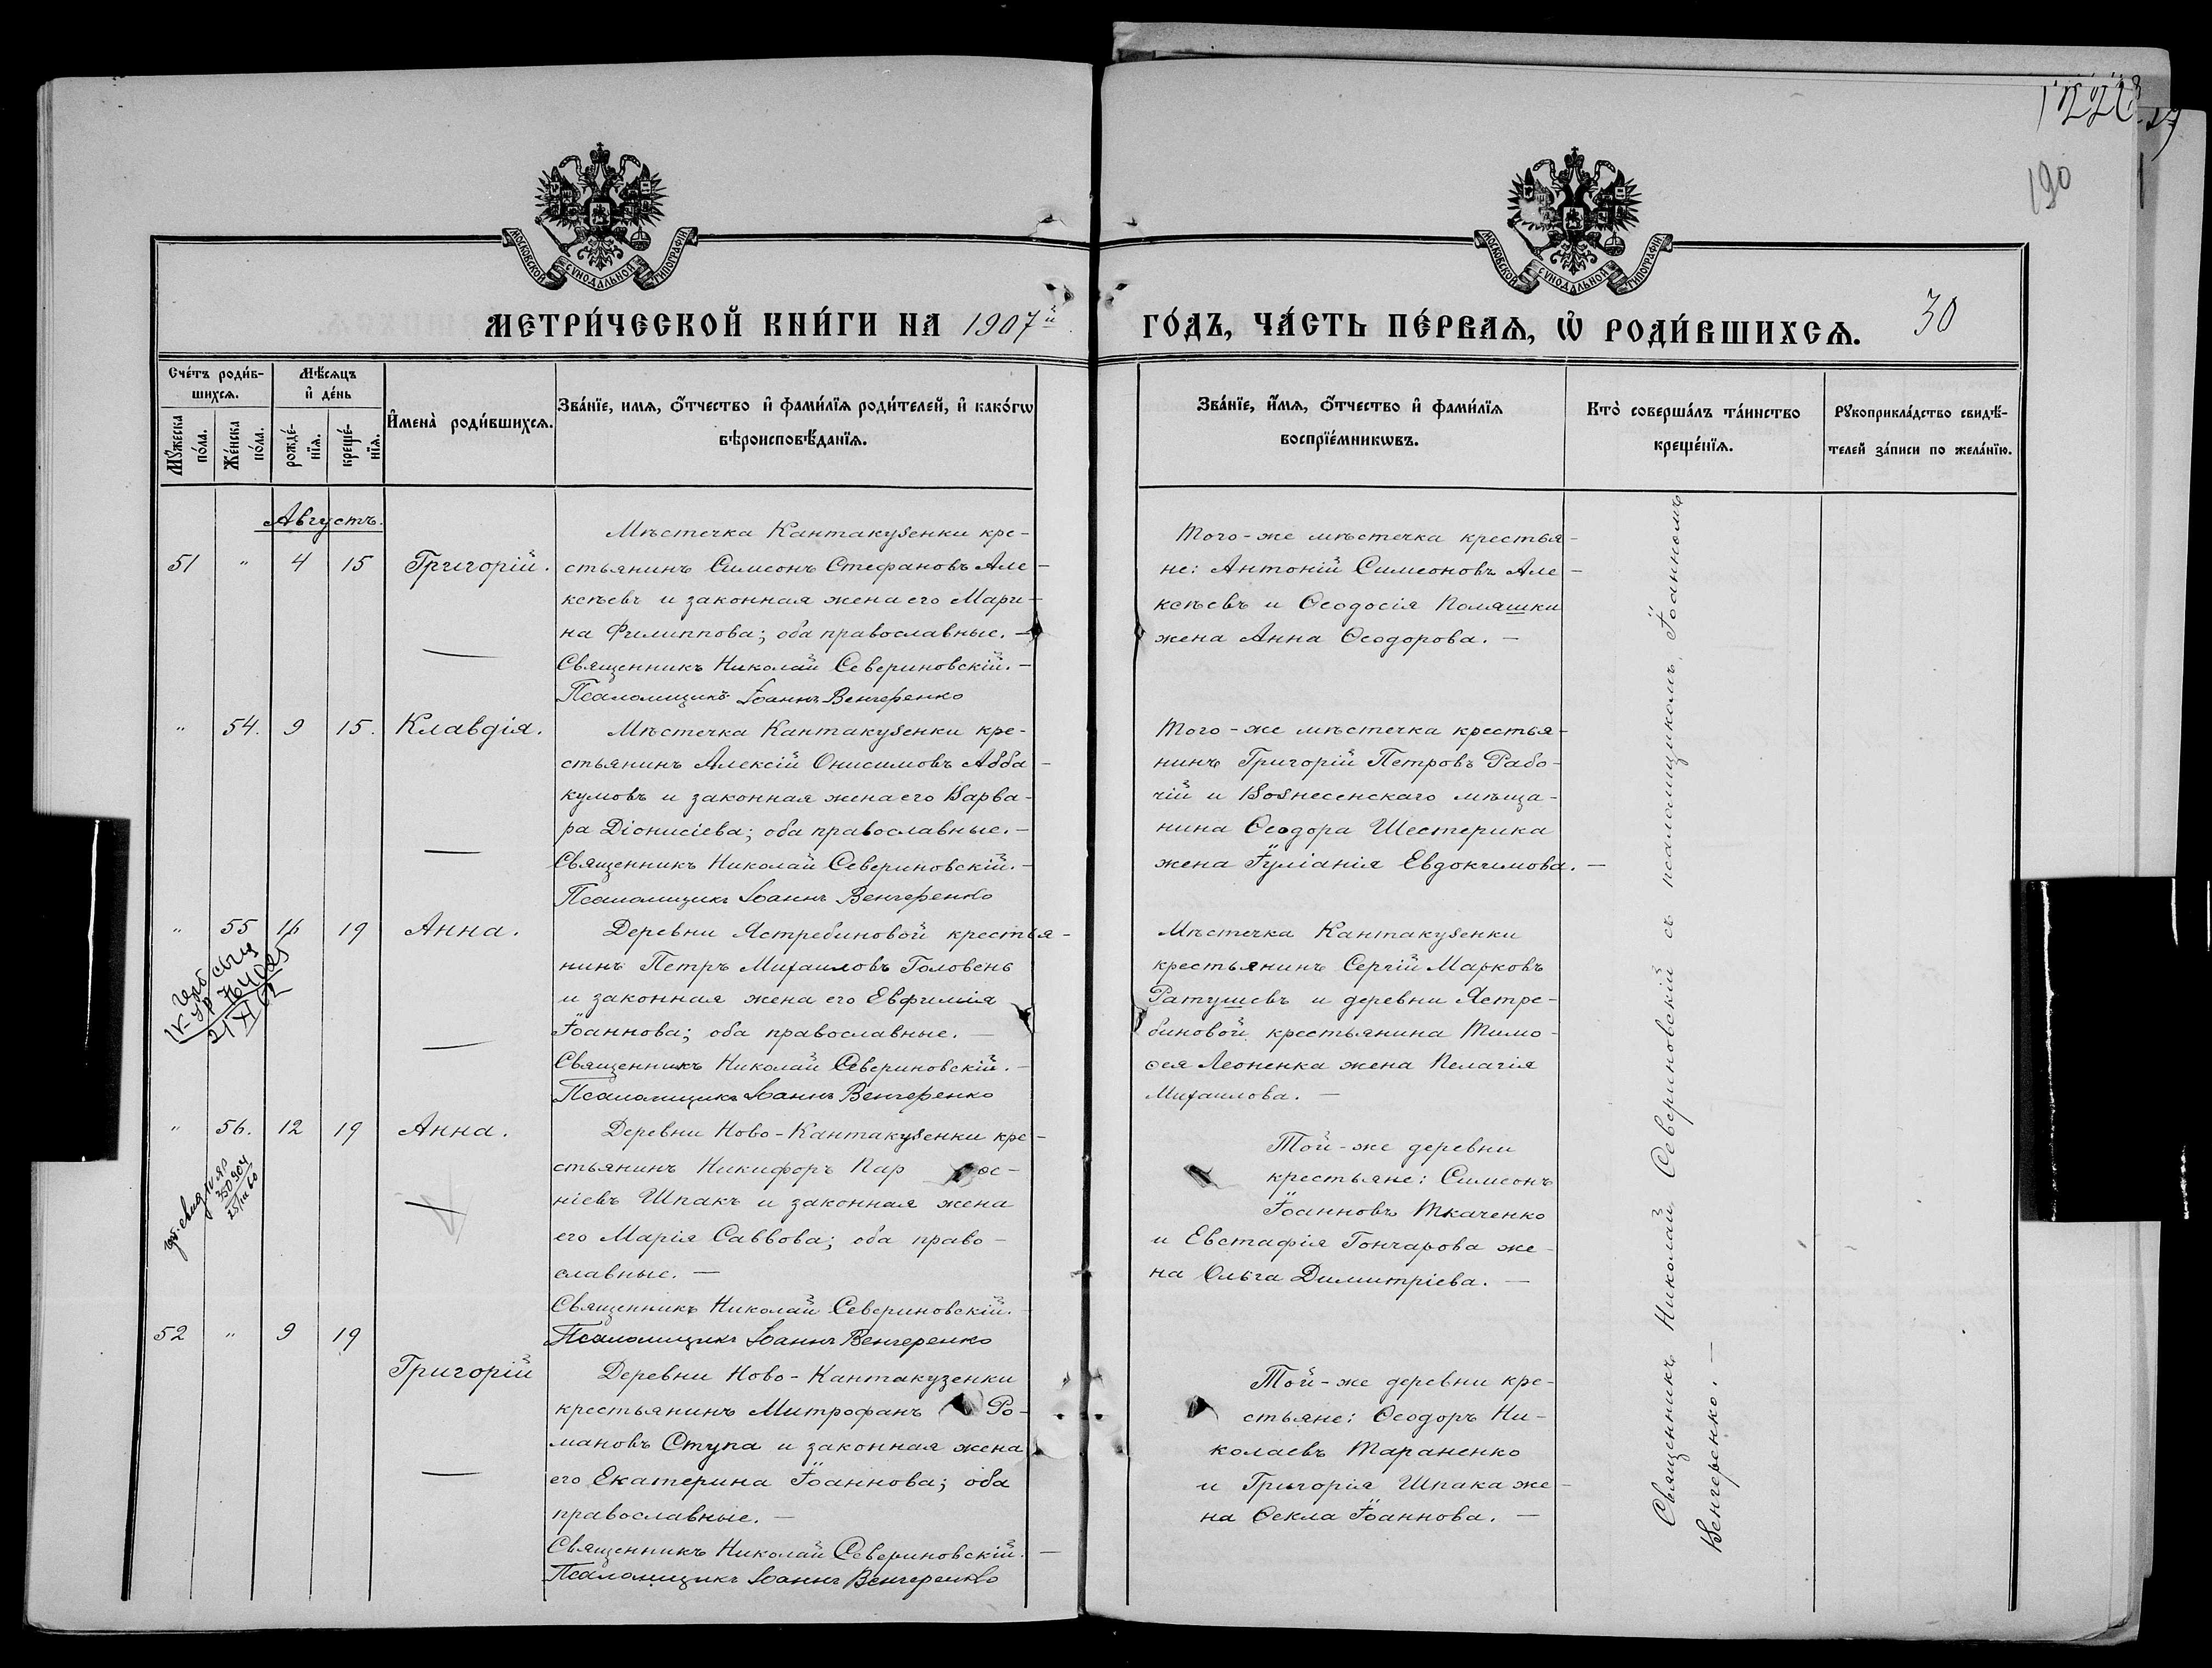 1907й
30
190
МОСКОВСКОЙ СѴНОДАЛЬНОЙ ТИПОГРАФІИ
МОСКОВСКОЙ СѴНОДАЛЬНОЙ ТИПОГРАФІИ
МЕТРИ́ЧЕСКОЙ КНИ́ГИ НА 1907й
ГО́ДЪ, ЧА́СТЬ ПЕ́РВАѦ, Ѡ҆ РОДИ́ВШИХСѦ.
Сче́тъ роди́в-
шихсѧ.
Мꙋ́жеска по́ла.
Же́нска по́ла.
Мѣ́сѧцъ
и҆ де́нь
рожде́-нїѧ.
креще́-нїѧ.
И҆мена̀ роди́вшихсѧ.
Зва́нїе, имѧ, ѻ҆́тчество и҆ фами́лїѧ роди́телей, и҆ како́гѡ
вѣроисповѣ́данїѧ.
Зва́нїе, и҆́мѧ, ѻ҆́тчество и҆ фами́лїѧ
воспрїе́мникѡвъ.
Кто̀ соверша́лъ та́инство
креще́нїѧ.
Рꙋкоприкла́дство свидѣ́-
телей за́писи по жела́нїю.
Августъ.
51 " 4 15 Григорій.
Мѣстечка Кантакуѕенки кре-
стьянинъ Симеонъ Стефановъ Але-
ксѣевъ и законная жена его Мари-
на Филиппова; оба православные. —
Священникъ Николай Севериновскій. —
Псаломщикъ Іоаннъ Венгеренко
Того-же мѣстечка крестья-
не: Антоній Симеоновъ Але-
ксѣевъ и Ѳеодосія Поляшки
жена Анна Ѳеодорова. —
" 54. 9 15. Клавдія.
Мѣстечка Кантакуѕенки кре-
стьянинъ Алексій Онисимовъ Авва-
кумовъ и законная жена его Варва-
ра Діонисіева; оба православные. —
Священникъ Николай Севериновскій. —
Псаломщикъ Іоаннъ Венгеренко
Того-же мѣстечка крестья-
нинъ Григорій Петровъ Рабо-
чій и Воѕнесенскаго мѣща-
нина Ѳеодора Шестерика
жена Іуліанія Евдокимова. —
" 55 16 19 Анна.
21/XI 62
Деревни Ястребиновой крестья-
нинъ Петръ Михаиловъ Головень
и законная жена его Евфимія
Іоаннова; оба православные. —
Священникъ Николай Севериновскій. —
Псаломщикъ Іоаннъ Венгеренко
Мѣстечка Кантакуѕенки
крестьянинъ Сергій Марковъ
Ратушевъ и деревни Ястре-
биновой крестьянина Тимо-
ѳея Леоненка жена Пелагія
Михаилова. —
" 56. 12 19 Анна.
350904
Деревни Ново-Кантакуѕенки кре-
стьянинъ Никифоръ Пар ѳе-
ніевъ Шпакъ и законная жена
его Марія Саввова; оба право-
славные. —
Священникъ Николай Севериновскій. —
Псаломщикъ Іоаннъ Венгеренко
Той-же деревни
крестьяне: Симеонъ
Іоанновъ Ткаченко
и Евстафія Гончарова же-
на Ольга Димитріева. —
52 " 9 19
Григорій
Деревни Ново-Кантакузенки
крестьянинъ Митрофанъ Ро-
мановъ Ступа и законная жена
его Екатерина Іоаннова; оба
православные. —
Священникъ Николай Севериновскій. —
Псаломщикъ Іоаннъ Венгеренко
Той-же деревни кре-
стьяне: Ѳеодоръ Ни-
колаевъ Тараненко
и Григорія Шпака же-
на Ѳекла Іоаннова. —
Священникъ Николай Севериновскій съ псаломщикомъ Іоанномъ
Венгеренко. —